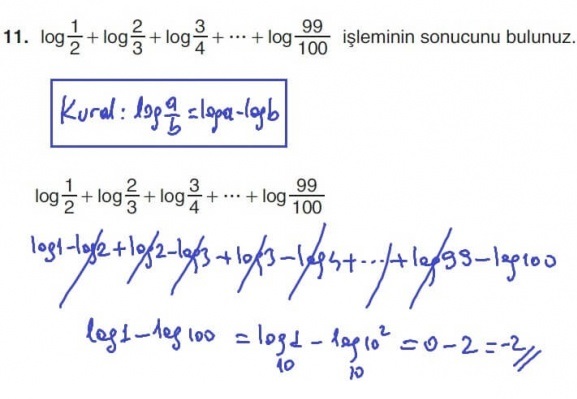 11. log 1/2 + log 2/3 + log 3/4 + ··· + log 99/100 işleminin sonucunu bulunuz.
Kural: log a/b = loga - logb
log 1/2 + log 2/3 + log 3/4 + ··· + log 99/100
log1 - log2 + log2 - log3 + log3 - log4 + ... + log99 - log100
log1 - log100 = log₁₀1 - log₁₀10² = 0 - 2 = -2//